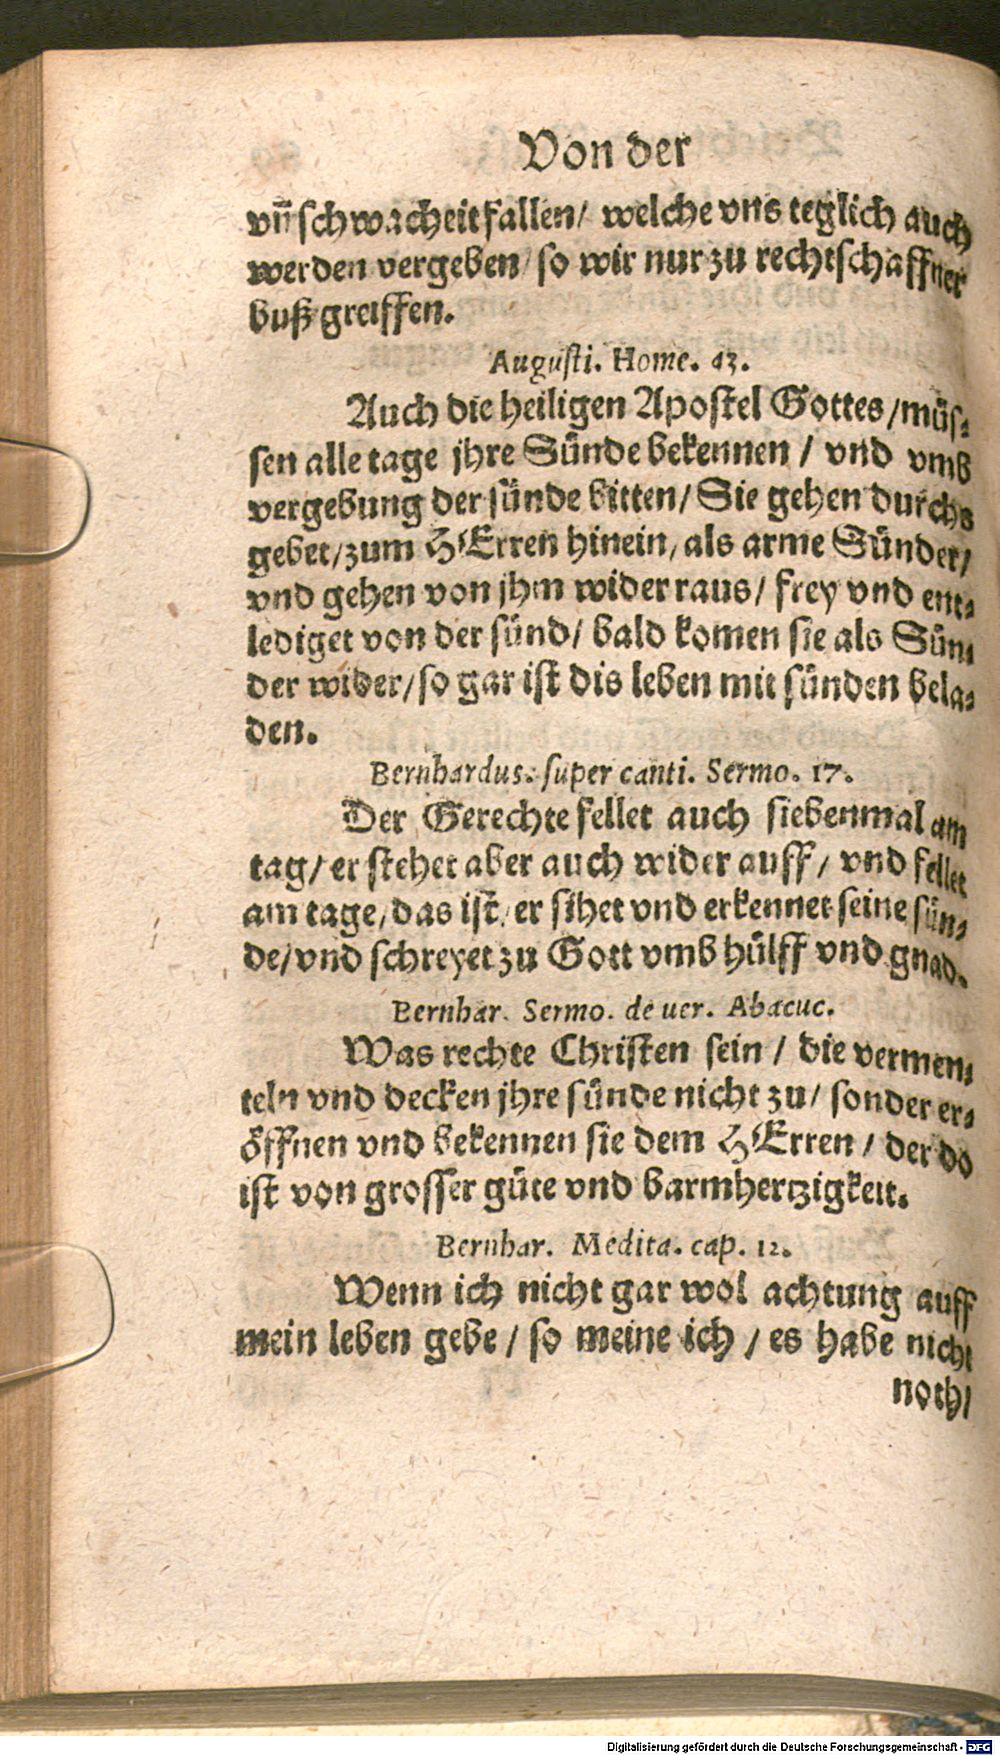 Von der
vn̄ schwacheit fallen/ welche vns teglich auch
werden vergeben/ so wir nur zu rechtschaffner
buß greiffen.
Augusti. Home. 43.
Auch die heiligen Apostel Gottes/müs-
sen alle tage jhre Sünde bekennen / vnd vmb
vergebung der sünde bitten/ Sie gehen durchs
gebet/zum HErren hinein/ als arme Sünder/
vnd gehen von jhm wider raus/ frey vnd ent-
lediget von der sünd/ bald komen sie als Sün-
der wider/so gar ist dis leben mit sünden bela-
den.
Bernhardus. super canti. Sermo. 17.
Der Gerechte fellet auch siebenmal am
tag/ er stehet aber auch wider auff/ vnd fellet
am tage/ das ist/ er sihet vnd erkennet seine sün-
de/vnd schreyet zu Gott vmb hülff vnd gnad.
Bernhar. Sermo. de uer. Abacuc.
Was rechte Christen sein / die vermen-
teln vnd decken jhre sünde nicht zu/ sonder er-
öffnen vnd bekennen sie dem HErren / der do
ist von grosser güte vnd barmhertzigkeit.
Bernhar. Medita. cap. 12.
Wenn ich nicht gar wol achtung auff
mein leben gebe / so meine ich / es habe nicht
noth/
Digitalisierung gefördert durch die Deutsche Forschungsgemeinschaft - DFG